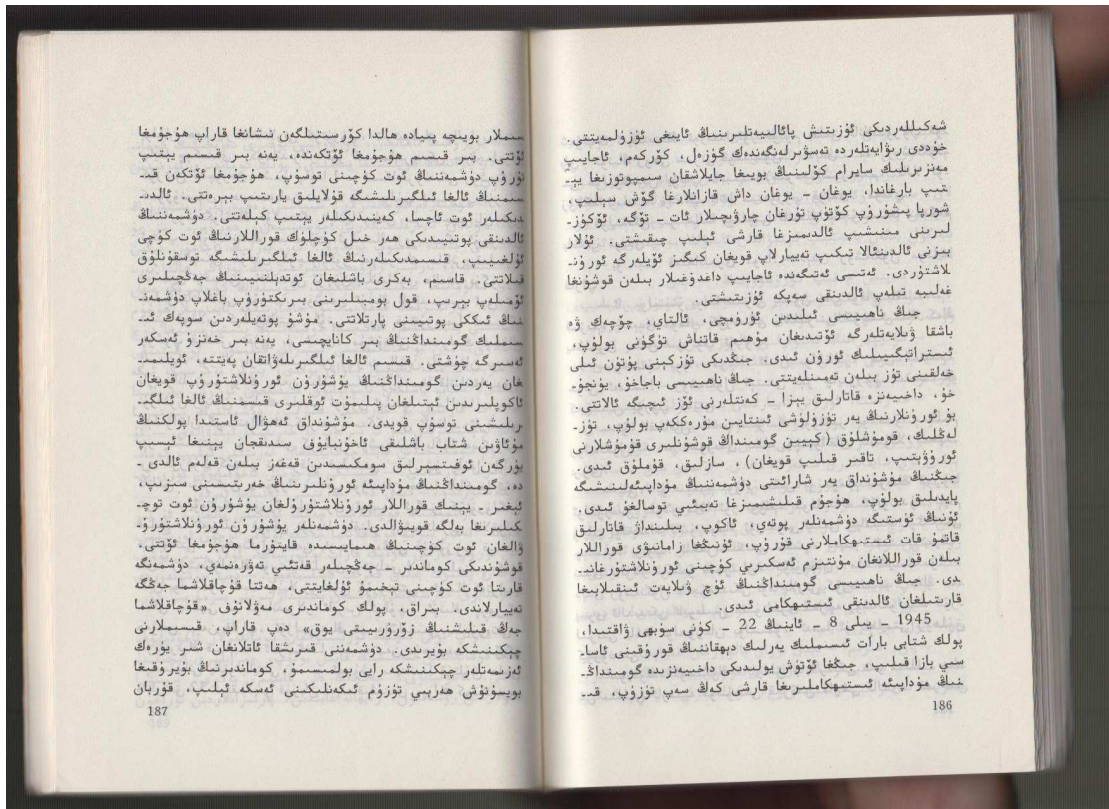 شەكىللەردىكى ئۇزىتىش پائالىيەتلىرىنىڭ ئايىغى ئۈزۈلمەيتتى.
خۇددى رىۋايەتلەردە تەسۋىرلەنگەندەك گۈزەل، كۆركەم، ئاجايىپ
مەنزىرىلىك سايرام كۆلىنىڭ بويىغا جايلاشقان سىمپوتوزىغا يې-
تىپ بارغاندا، يوغان - يوغان داش قازانلارغا گۆش سېلىپ،
شورپا پىشۇرۇپ كۈتۈپ تۇرغان چارۋىچىلار ئات - تۆگە، ئۆكۈز-
لىرىنى مىنىشىپ ئالدىمىزغا قارشى ئېلىپ چىقىشتى. ئۇلار
بىزنى ئالدىنئالا تىكىپ تەييارلاپ قويغان كىگىز ئۆيلەرگە ئورۇن-
لاشتۇردى. ئەتىسى ئەتىگەندە ئاجايىپ داغدۇغىلار بىلەن قوشۇنغا
غەلىبە تىلەپ ئالدىنقى سەپكە ئۇزىتىشتى.
جىڭ ناھىيىسى ئىلىدىن ئۈرۈمچى، ئالتاي، چۆچەك ۋە
باشقا ۋىلايەتلەرگە ئۆتىدىغان مۇھىم قاتناش تۈگۈنى بولۇپ،
ئىستراتېگىيىلىك ئورۇن ئىدى. جىڭدىكى تۇزكېنى پۈتۈن ئىلى
خەلقىنى تۇز بىلەن تەمىنلەيتتى. جىڭ ناھىيىسى باجاخۇ، يۇنجۇ-
خۇ، داخىيەنزە قاتارلىق يېزا - كەنتلەرنى ئۆز ئىچىگە ئالاتتى.
بۇ ئورۇنلارنىڭ يەر تۈزۈلۈشى ئىنتايىن مۇرەككەپ بولۇپ، تۈز-
لەڭلىك، قومۇشلۇق (كېيىن گومىنداڭ قوشۇنلىرى قۇمۇشلارنى
ئورۇۋېتىپ، تاقىر قىلىپ قويغان)، سازلىق، قۇملۇق ئىدى.
جىڭنىڭ مۇشۇنداق يەر شارائىتى دۈشمەننىڭ مۇداپىئەلىنىشىگە
پايدىلىق بولۇپ، ھۇجۇم قىلىشىمىزغا تەبىئىي توسالغۇ ئىدى.
ئۇنىڭ ئۈستىگە دۈشمەنلەر پوتەي، ئاكوپ، بىلىنداژ قاتارلىق
قاتمۇ قات ئىستىھكاملارنى قۇرۇپ، ئۇنىڭغا زامانىۋى قوراللار
بىلەن قوراللانغان مۇنتىزىم ئەسكىرىي كۈچىنى ئورۇنلاشتۇرغانى-
دى. جىڭ ناھىيىسى گومىنداڭنىڭ ئۈچ ۋىلايەت ئىنقىلابىغا
قارىتىلغان ئالدىنقى ئىستىھكامى ئىدى.
1945 - يىلى 8 - ئاينىڭ 22 - كۈنى سۈبھى ۋاقتىدا،
پولك شتابى بارات ئىسىملىك يەرلىك دېھقاننىڭ قورۇقىنى ئاسا-
سىي بازا قىلىپ، جىڭغا ئۆتۈش يولىدىكى داخىيەنزىدە گومىنداڭ-
نىڭ مۇداپىئە ئىستىھكاملىرىغا قارشى كەڭ سەپ تۈزۈپ، قى-
186
سىملار بويىچە پىيادە ھالدا كۆرسىتىلگەن نىشانغا قاراپ ھۇجۇمغا
ئۆتتى. بىر قىسىم ھۇجۇمغا ئۆتكەندە، يەنە بىر قىسىم يېتىپ
تۇرۇپ دۈشمەننىڭ ئوت كۈچىنى توسۇپ، ھۇجۇمغا ئۆتكەن قى-
سىمنىڭ ئالغا ئىلگىرىلىشىگە قۇلايلىق يارىتىپ بېرەتتى. ئالدى-
دىكىلەر ئوت ئاچسا، كەينىدىكىلەر يېتىپ كېلەتتى. دۈشمەننىڭ
ئالدىنقى پوتىيىدىكى ھەر خىل كۈچلۈك قوراللارنىڭ ئوت كۈچى
ئۇلغىيىپ، قىسىمدىكىلەرنىڭ ئالغا ئىلگىرىلىشىگە توسقۇنلۇق
قىلاتتى. قاسىم، بەكرى باشلىغان ئوتدېلىنىيىنىڭ جەڭچىلىرى
ئۆمىلەپ بېرىپ، قول بومبىلىرىنى بىرىكتۈرۈپ باغلاپ دۈشمەن-
نىڭ ئىككى پوتىيىنى پارتلاتتى. مۇشۇ پوتەيلەردىن سوپەك ئى-
سىملىك گومىنداڭنىڭ بىر كاتايچىسى، يەنە بىر خەنزۇ ئەسكەر
ئەسىرگە چۈشتى. قىسىم ئالغا ئىلگىرىلەۋاتقان پەيتتە، ئويلىمى-
غان يەردىن گومىنداڭنىڭ يوشۇرۇن ئورۇنلاشتۇرۇپ قويغان
ئاكوپلىرىدىن ئېتىلغان پىلىمۇت ئوقلىرى قىسىمنىڭ ئالغا ئىلگى-
رىلىشىنى توسۇپ قويدى. مۇشۇنداق ئەھۋال ئاستىدا پولكنىڭ
مۇئاۋىن شتاب باشلىقى ئاخۇنبايۇف سىدىقجان يېنىغا ئېسىپ
يۈرگەن ئوفىتسېرلىق سومكىسىدىن قەغەز بىلەن قەلەم ئالدى -
دە، گومىنداڭنىڭ مۇداپىئە ئورۇنلىرىنىڭ خەرىتىسىنى سىزىپ،
ئېغىر - يېنىك قوراللار ئورۇنلاشتۇرۇلغان يوشۇرۇن ئوت توچ-
كىلىرىغا بەلگە قويىۋالدى. دۈشمەنلەر يوشۇرۇن ئورۇنلاشتۇرۇ-
ۋالغان ئوت كۈچىنىڭ ھىمايىسىدە قايتۇرما ھۇجۇمغا ئۆتتى.
قوشۇندىكى كوماندىر - جەڭچىلەر قەتئىي تەۋرەنمەي، دۈشمەنگە
قارىتا ئوت كۈچىنى تېخىمۇ ئۇلغايتتى، ھەتتا قۇچاقلاشما جەڭگە
تەييارلاندى. بىراق، پولك كوماندىرى مەۋلانۇف «قۇچاقلاشما
جەڭ قىلىشنىڭ زۆرۈرىيىتى يوق» دەپ قاراپ، قىسىملارنى
چېكىنىشكە بۇيرىدى. دۈشمەننى قىرىشقا ئاتلانغان شىر يۈرەك
ئەزىمەتلەر چېكىنىشكە رايى بولمىسىمۇ، كوماندىرنىڭ بۇيرۇقىغا
بويسۇنۇش ھەربىي تۈزۈم ئىكەنلىكىنى ئەسكە ئېلىپ، قۇربان
187